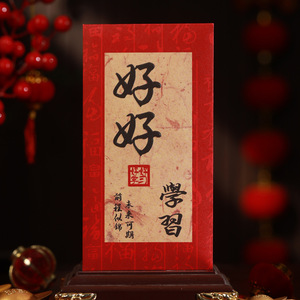 好好
學習
未來可期
前程似錦